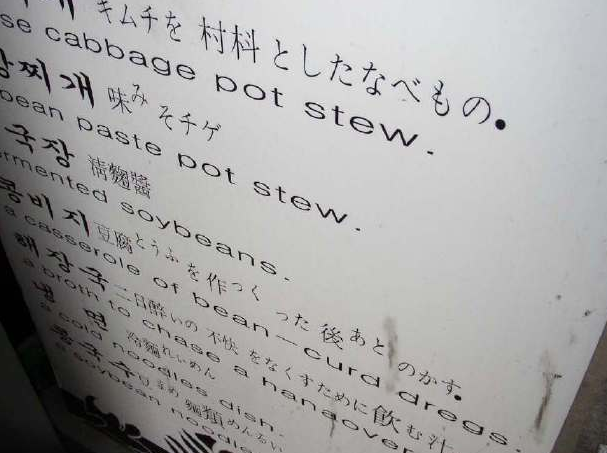 찌개 キムチを 村料 としたなべもの。
se cabbage pot stew.
장찌개 味み そチゲ
bean paste pot stew.
국장 淸麴醬
ermented soybeans.
콩비지 豆腐とうふ を作つく った 後あと のかす。
a casserole of bean-curd dregs.
해장국 二日酔いの 不快 をなくすために 飲む汁
a broth to chase a hangover
냉 면 冷麵れいめん
a cold noodles dish.
콩국수 豆まめ 麵類めんるい
a soybean noodle